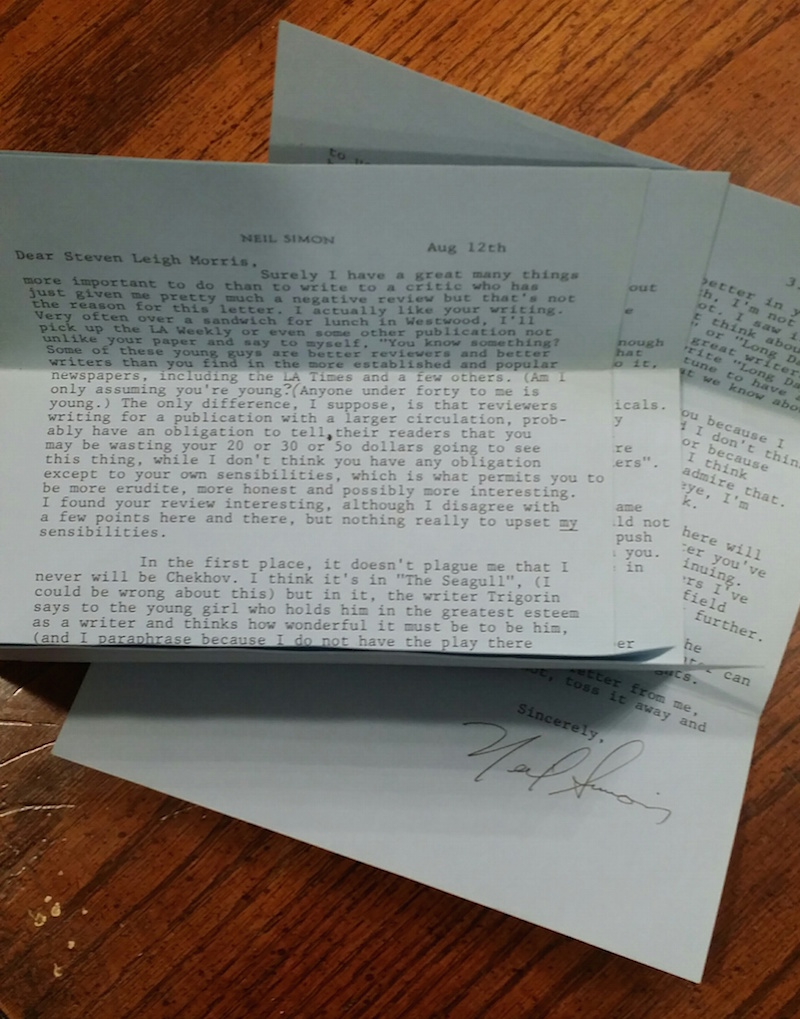 NEIL SIMON
Aug 12th
Dear Steven Leigh Morris,
Surely I have a great many things
more important to do than to write to a critic who has
just given me pretty much a negative review but that's not
the reason for this letter. I actually like your writing.
Very often over a sandwich for lunch in Westwood, I'll
pick up the LA Weekly or even some other publication not
unlike your paper and say to myself, "You know something?
Some of these young guys are better reviewers and better
writers than you find in the more established and popular
newspapers, including the LA Times and a few others. (Am I
only assuming you're young?(Anyone under forty to me is
young.) The only difference, I suppose, is that reviewers
writing for a publication with a larger circulation, prob-
ably have an obligation to tell their readers that you
may be wasting your 20 or 30 or 5o dollars going to see
this thing, while I don't think you have any obligation
except to your own sensibilities, which is what permits you to
be more erudite, more honest and possibly more interesting.
I found your review interesting, although I disagree with
a few points here and there, but nothing really to upset my
sensibilities.
In the first place, it doesn't plague me that I
never will be Chekhov. I think it's in "The Seagull", (I
could be wrong about this) but in it, the writer Trigorin
says to the young girl who holds him in the greatest esteem
as a writer and thinks how wonderful it must be to be him,
(and I paraphrase because I do not have the play there
to
out
e
nough
hat
o it,
icals.
y
re
ers".
ame
ld not
push
you.
in
er
3.
better in y
h, I'm not
ot. I saw i
t think abou
" or "Long Da
great writer
rite "Long Da
tune to have a
t we know abo
ou because I
d I don't thin
or because
I think
admire that.
eye, I'm
k.
here will
er you've
inuing.
rs I've
field
further.
he
can
letter from me,
toss it away and
Sincerely,
Neil Simon